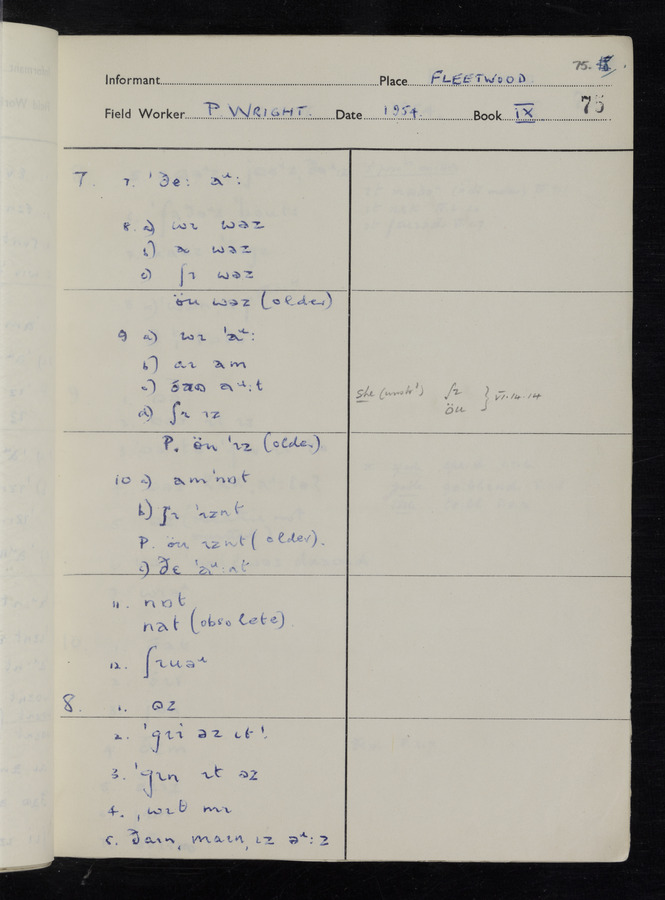 75. 
Informant Place FLEETWOOD
75
Field Worker P WRIGHT. Date 1954. Book IX
7. 7. 'ðe: aʴ:
8. a) wɪ wəz
b) ə wəz
c) ʃɪ wəz
öu wəz (older)
9 a) wɪ 'aʴ:
b) aɪ am
c) aʴ:t
d) ʃɪ ɪz
P. öu 'ɪz (older)
She (unstr.) ʃɪ
öu } VI.14.14
10 a) am 'nɒt
b) ʃɪ 'ɪznt
P. öu ɪznt (older).
c) ðe 'aʴ:nt
11. nɒt
nat (obsolete)
12. ʃɪuəʴ
8. 1. əz
2. 'gɪi əz ɪt!
3. 'gɪn ɪt əz
4. ˌwɪt mɪ
5. ðaɪn, maɪn, ɪz əʴ:z